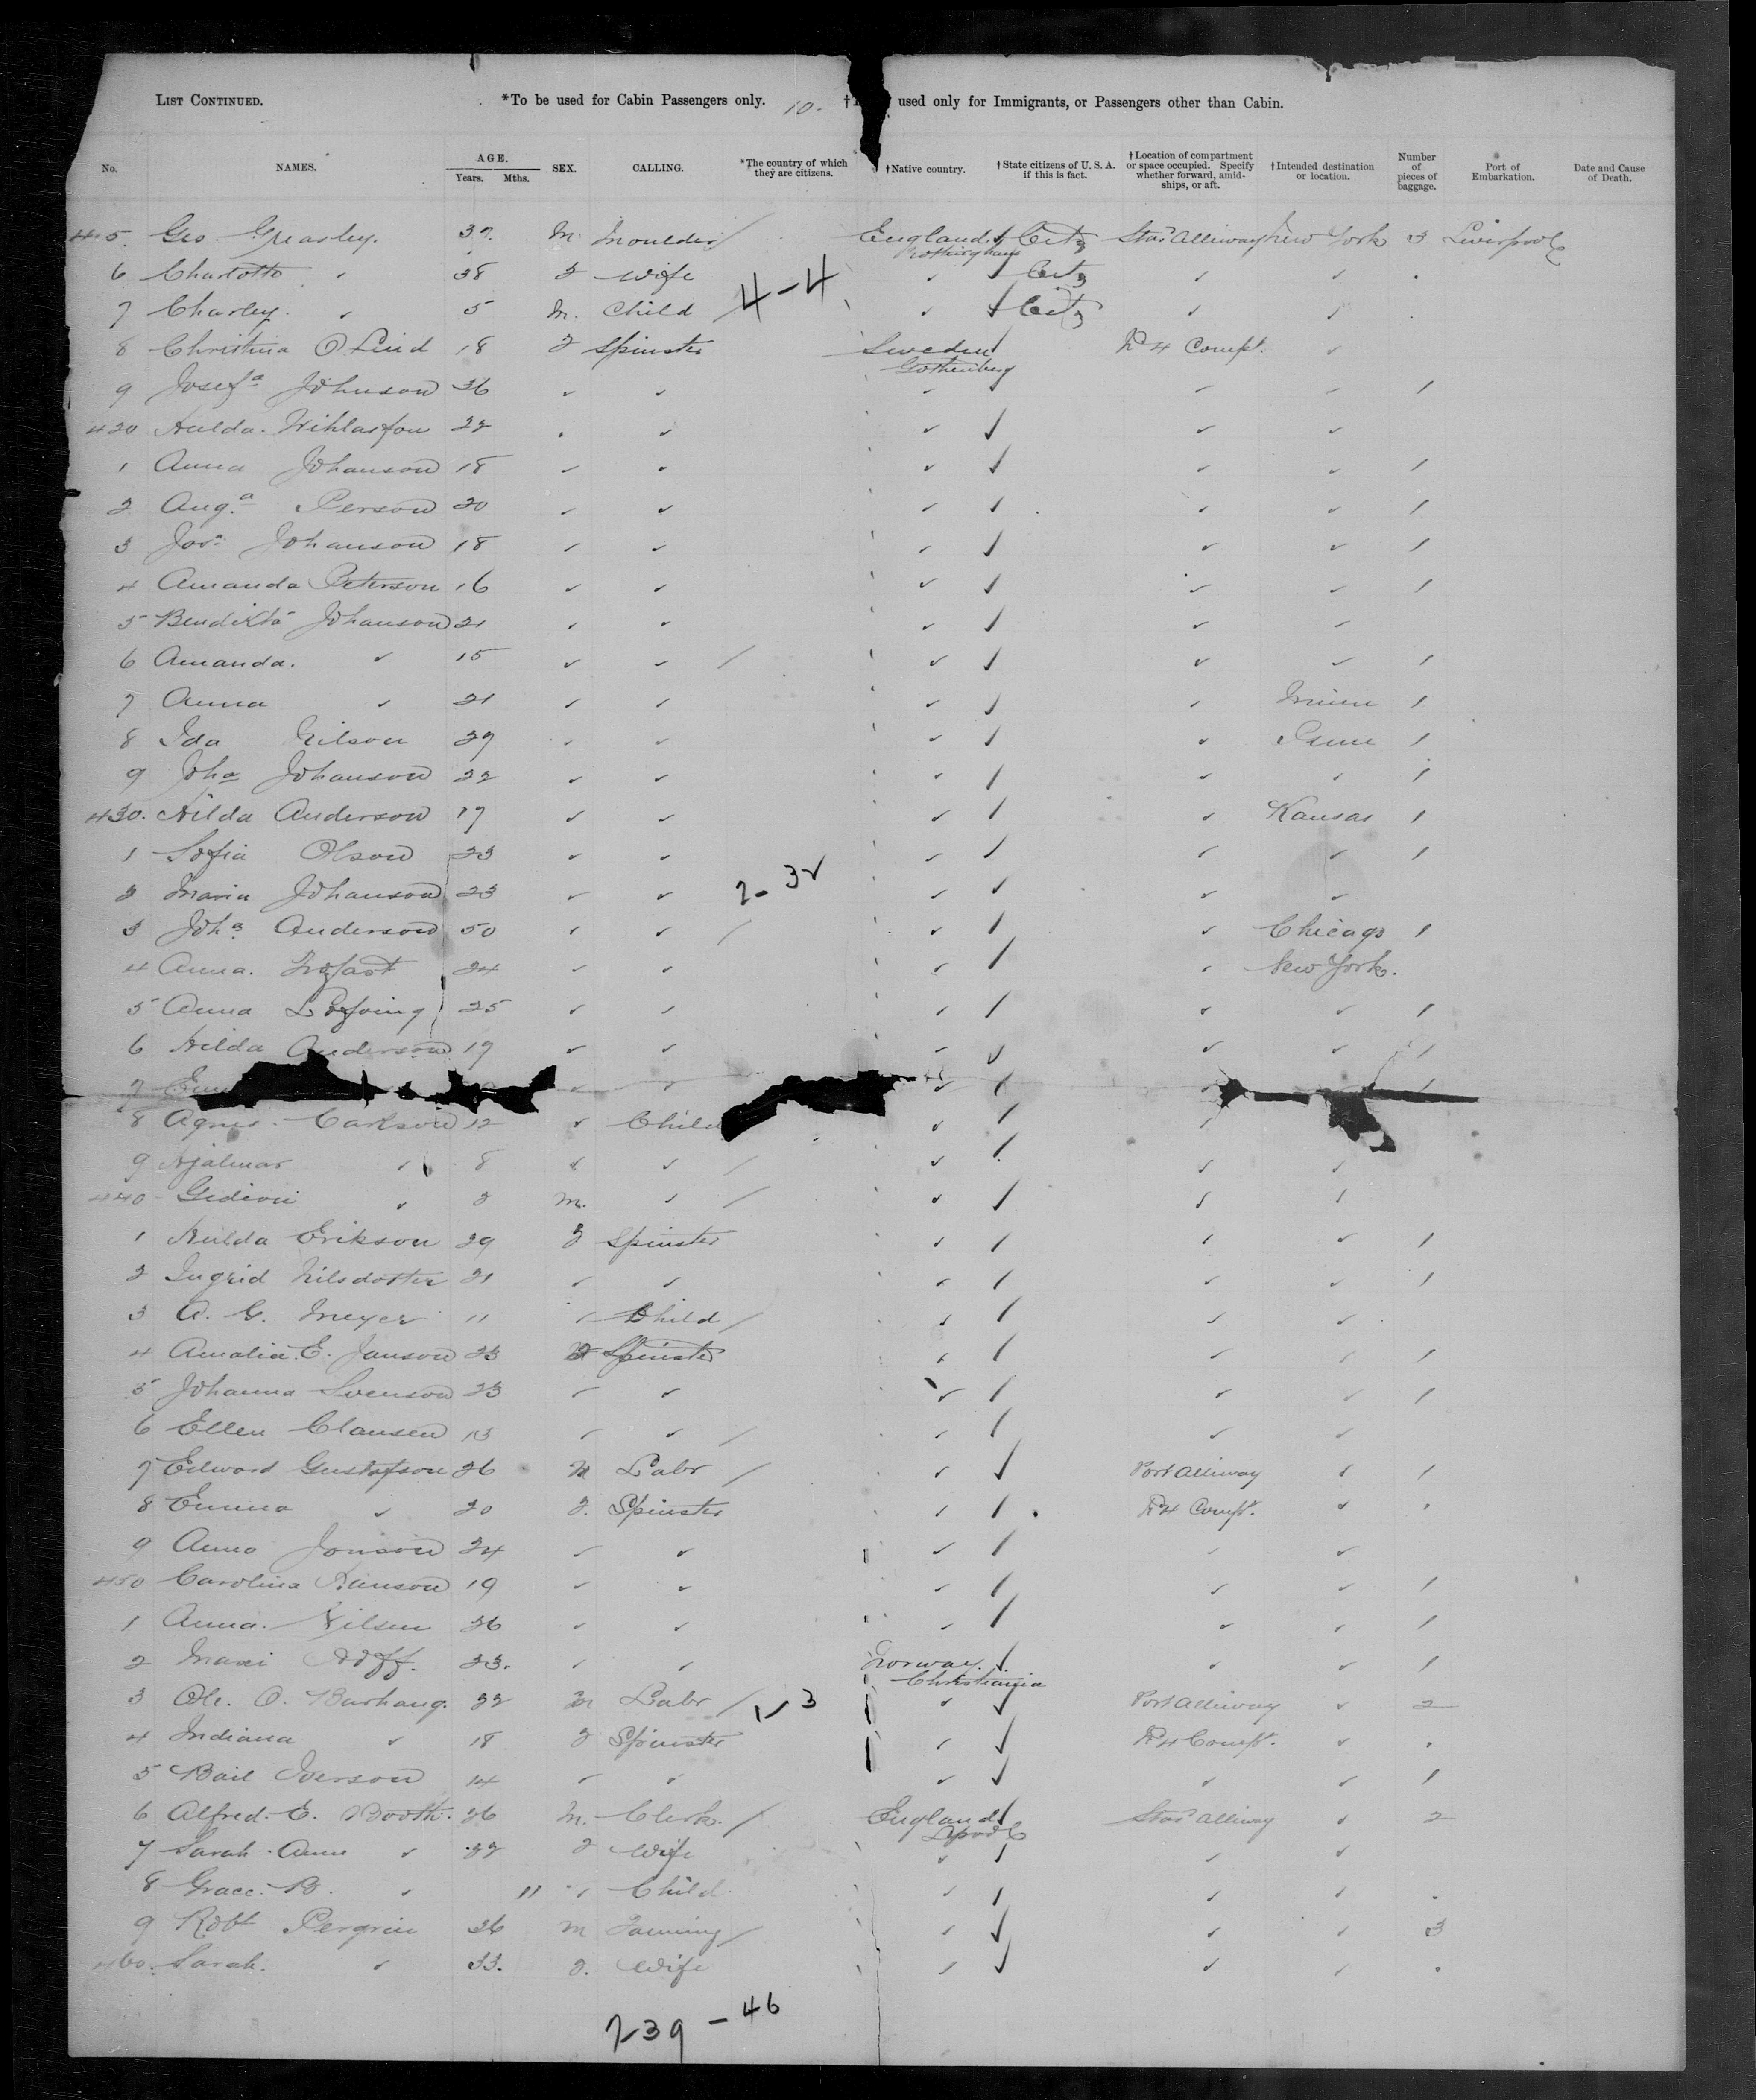 LIST CONTINUED. *To be used for Cabin Passengers only. 10. † used only for Immigrants, or Passengers other than Cabin.
No. NAMES. AGE. Years. Mths. SEX. CALLING. *The country of which they are citizens. †Native country. †State citizens of U. S. A. if this is fact. †Location of compartment or space occupied. Specify whether forward, amidships, or aft. †Intended destination or location. Number of pieces of baggage. Port of Embarkation. Date and Cause of Death.
Geo. Greasley. 37. M. Moulder England Citz Starᵈ Alliway New York 3 Liverpool
Nottingham
6 Charlotte ✓ 38 F Wife ✓ Citz ✓ ✓
4-4
7 Charley. ✓ 5 M. Child ✓ Citz ✓ ✓
8 Christina O Lind 18 F Spinster Sweden Nº 4 Compt. ✓
Gothenberg
9 Josefᵃ Johnson 36 ✓ ✓ ✓ ✓ ✓ 1
420 Hulda 22 ✓ ✓ ✓ ✓ ✓
1 Anna Johanson 18 ✓ ✓ ✓ ✓ ✓ ✓ 1
2 Augᵃ Person 20 ✓ ✓ ✓ ✓ ✓ ✓ 1
3 Johanson 18 ✓ ✓ ✓ ✓ ✓ ✓ 1
4 Amanda Peterson 16 ✓ ✓ ✓ ✓ ✓ ✓ 1
5 Johanson 21 ✓ ✓ ✓ ✓ ✓ ✓
6 Amanda. ✓ 15 ✓ ✓ / ✓ ✓ ✓ ✓ 1
7 Anna ✓ 21 ✓ ✓ ✓ ✓ ✓ Minn 1
8 Ida Nilson 29 ✓ ✓ ✓ ✓ ✓ Penn 1
9 Johᵃ Johanson 22 ✓ ✓ ✓ ✓ ✓ ✓ 1
430. Hilda Anderson 17 ✓ ✓ ✓ ✓ ✓ Kansas 1
1 Sofia Olson 23 ✓ ✓ ✓ ✓ ✓ ✓ 1
2-32
2 Maria Johanson 23 ✓ ✓ ✓ ✓ ✓ ✓
3 Johᵃ Anderson 50 ✓ ✓ / ✓ ✓ ✓ Chicago 1
4 Anna. 24 ✓ ✓ ✓ ✓ ✓ New York.
5 Anna 25 ✓ ✓ ✓ ✓ ✓ ✓ 1
6 Hilda Anderson 19 ✓ ✓ ✓ ✓ ✓ ✓ 1
7 ✓ ✓ ✓ ✓ 1
8 Agnes Carlson 12 ✓ Child ✓ ✓ ✓
9 Hjalmar ✓ 8 ✓ ✓ / ✓ ✓ ✓ ✓
440 Gideon ✓ 3 M. ✓ / ✓ ✓ ✓ ✓
1 Hulda Erikson 29 F Spinster ✓ ✓ ✓ ✓ 1
2 Ingrid Nilsdotter 21 ✓ ✓ ✓ ✓ ✓ ✓ 1
3 A. G. Meyer 11 ✓ Child / ✓ ✓ ✓ ✓
4 Amalia E. Janson 23 F Spinster ✓ ✓ ✓ ✓ 1
5 Johanna Svenson 23 ✓ ✓ ✓ ✓ ✓ ✓ 1
6 Ellen Clausen 13 ✓ ✓ / ✓ ✓ ✓ ✓
7 Edward Gustafson 26 M Labr / ✓ ✓ Port Alliway ✓ 1
8 Emma ✓ 20 F. Spinster ✓ ✓ Nº 4 Compt. ✓
9 Anna Jonson 24 ✓ ✓ ✓ ✓ ✓ ✓
450 Carolina Hanson 19 ✓ ✓ ✓ ✓ ✓ ✓ 1
1 Anna. Nilsen 26 ✓ ✓ ✓ ✓ ✓ ✓ 1
2 23. ✓ ✓ Norway. ✓ ✓ ✓ 1
Christiania
3 Ole. O. 22 M Labr / 1-3 ✓ ✓ Port Alliway ✓ 2
4 Indiana ✓ 18 F Spinster ✓ ✓ Nº 4 Compt. ✓
5 Iverson 14 ✓ ✓ ✓ ✓ ✓ ✓ 1
6 Alfred. E. Booth. 26 M. Clerk. / England Starᵈ Alliway ✓ 2
L'pool
7 Sarah Ann ✓ 22 F Wife ✓ ✓ ✓ ✓
8 Grace. B. ✓ 11 ✓ Child ✓ ✓ ✓ ✓
9 Robt Pergrin 36 M / ✓ ✓ ✓ ✓ 3
460. Sarah. ✓ 33. F. Wife ✓ ✓ ✓ ✓
239-46